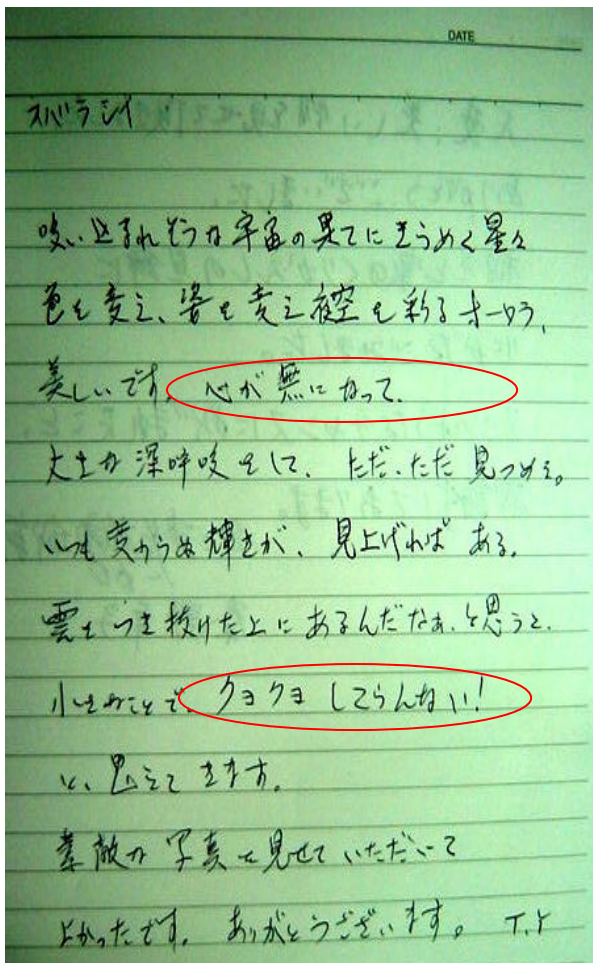 DATE
スバラシイ
吸い込まれそうな宇宙の果てにきらめく星々
色を変え、姿を変え夜空を彩るオーロラ、
美しいです。心が無になって、
大きな深呼吸をして、ただ、ただ見つめる。
いつも変わらぬ輝きが、見上げれば ある。
雲をつき抜けた上にあるんだなぁ、と思うと、
小さなことで、クヨクヨしてらんない!
と、思えてきます。
素敵な写真を見せていただいて
よかったです。ありがとうございます。 T.Y